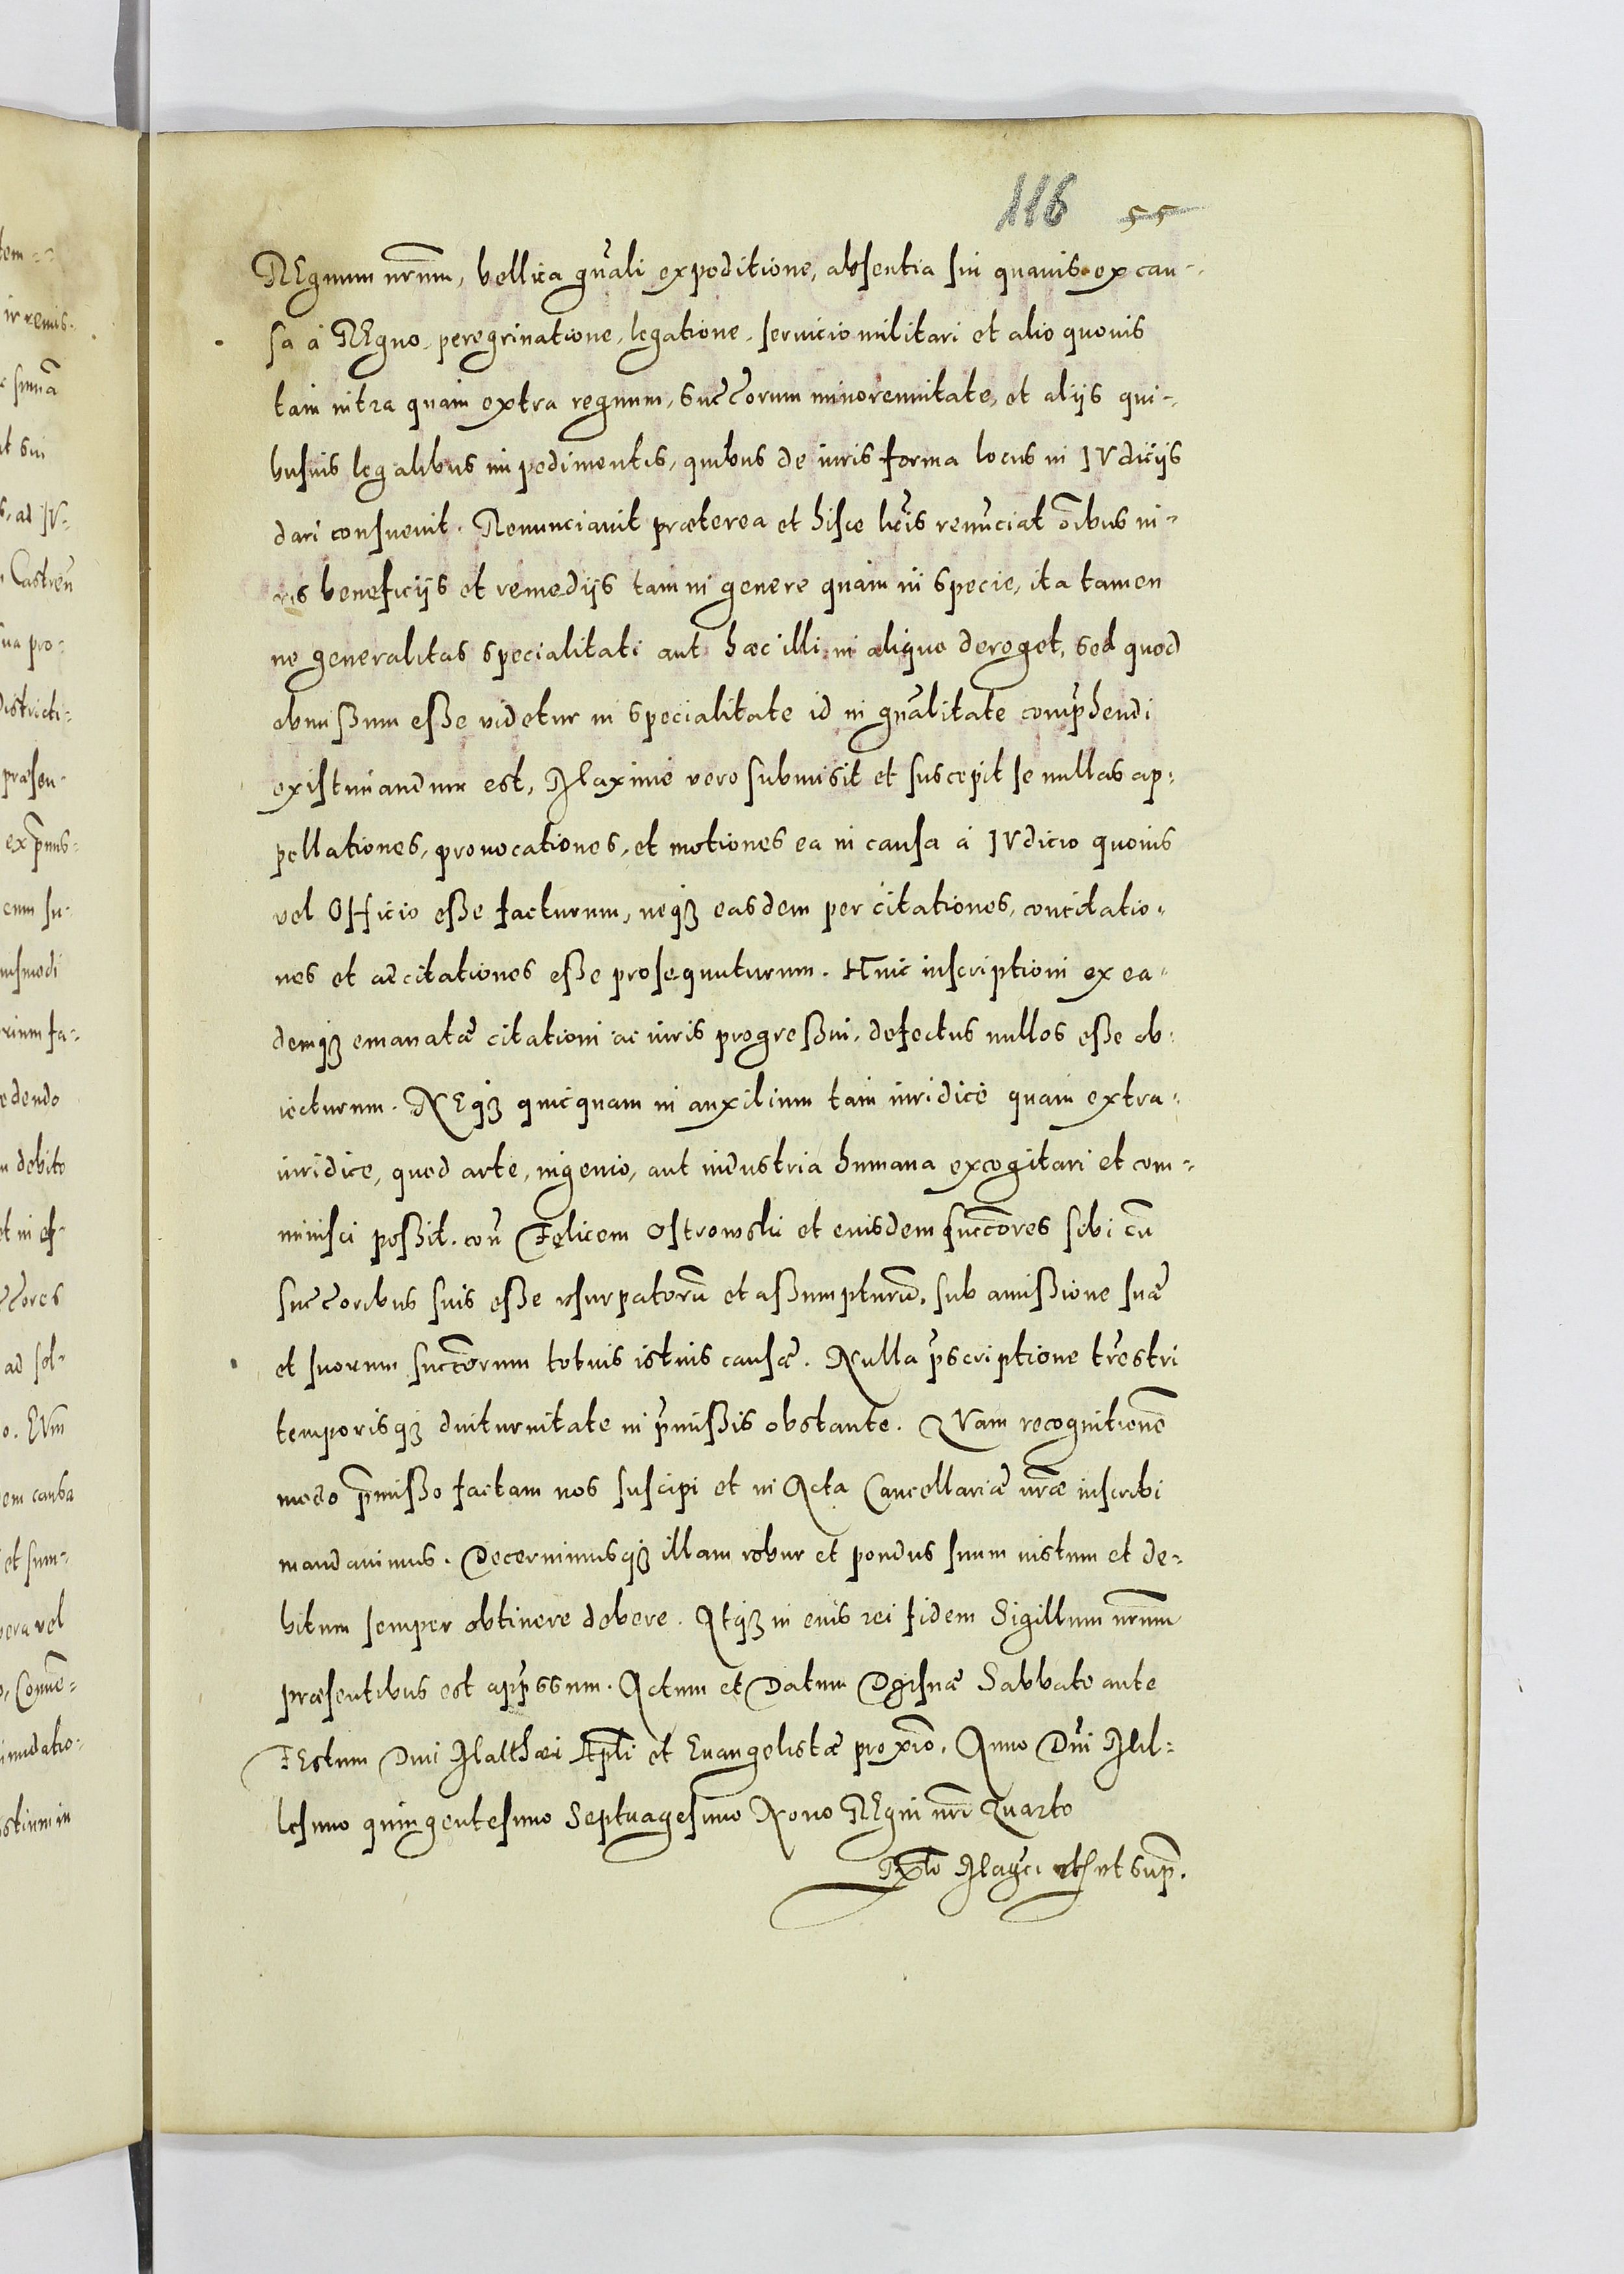 116 55
REgnum nrum, bellica gnali expeditione, absentia sui quauis ex cau-
sa à REgno, peregrinatione, legatione, seruicio militari et alio quouis
tam intra quam extra regnum, succorum minorennitate, et alijs qui-
busuis legalibus impedimentis, quibus de iuris forma locus in IVdicijs
dari consueuit. Renunciauit præterea et hisce lris renunciat oibus iu-
ris beneficijs et remedijs tam in genere quam in specie, ita tamen
ne generalitas specialitati aut hæc illi in aliquo deroget, sed quod
obmißum eße videtur in specialitate id in gnalitate comphendi
existimandum est, Maxime vero submisit et suscepit se nullas ap-
pellationes, prouocationes, et motiones ea in causa à IVdicio quouis
vel Officio eße facturum, neqz easdem per citationes, concitatio-
nes et adcitationes eße prosequuturum. Huic inscriptioni ex ea-
demqz emanatæ citationi ac iuris progreßui, defectus nullos eße ob-
iecturum. NEqz quicquam in auxilium tam iuridicè quam extra-
iuridice, quod arte, ingenio, aut industria humana excogitari et com-
minisci poßit. con Felicem Ostrowski et eiusdem succores sibi cu
succoribus suis eße vsurpaturu et aßumpturu, sub amißione suæ
et suorum succorum totius istius causæ. Nulla pscriptione trestri
temporisqz diuturnitate in pmißis obstante. QVam recognitione
modo pmißo factam nos suscipi et in Acta Cancellariæ nræ inscribi
mandauimus. Decernimusqz illam robur et pondus suum iustum et de-
bitum semper obtinere debere. Atqz in eius rei fidem Sigillum nrum
præsentibus est appssum. Actum et Datum Dzisnæ Sabbato ante
FEstum Diui Matthæi Apli et Euangelistæ proxio. Anno Dni Mil-
lesimo quingentesimo Septuagesimo Nono REgni nri Quarto
Rlo Magci etc vt sup.
tem-
irremis.
summa
et sui
s, ad IV-
Castren
sua pro-
Districti-
præsen-
expmus-
cum su-
iusmodi
rium fa-
edendo
m debito
et in ef-
ccores
ad sol-
o. EVm
dem causa
et sum-
vera vel
o, Conue-
imidatio-
stium in